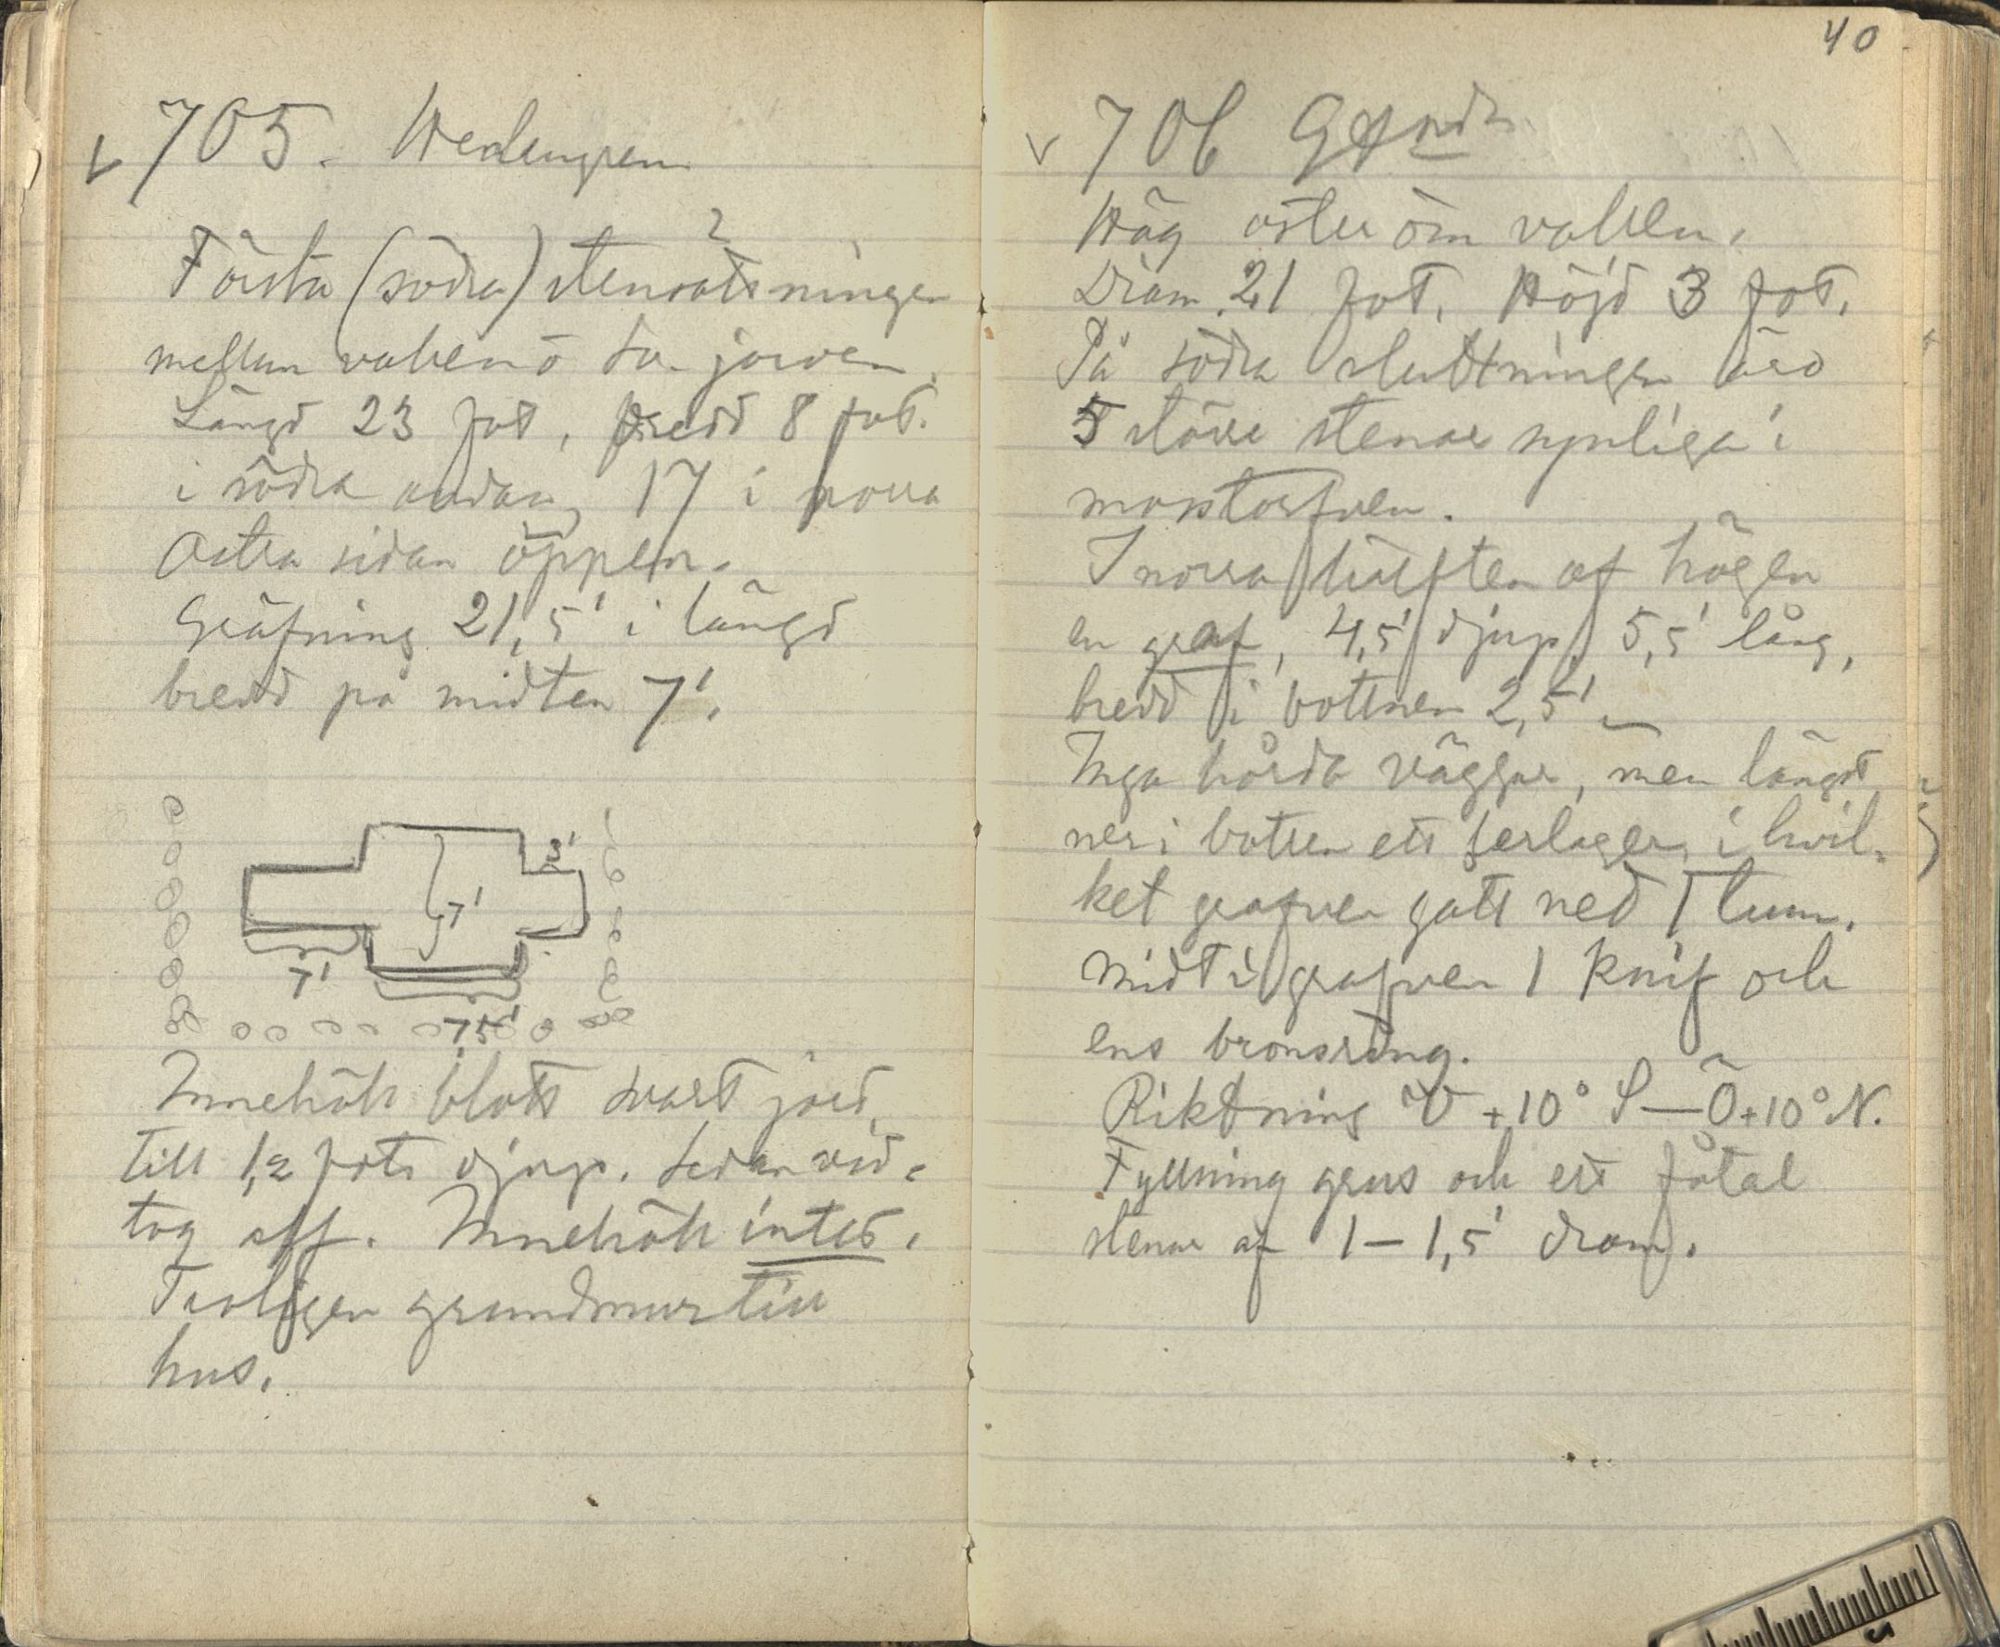 40
705. Hedengren
2
Första (södra) stensättningen
mellan vallen ō sv. jorden.
Längd 23 fot, bredd 8 fot.
i södra ändan, 17 i norra
Östra sidan öppen.
Gräfning 21,5' i längd
bredd på midten 7'.
3'
7'
7'
7,5'
Innehöll blott svart jord
till 1,2 fots djup. Sedan vid-
tog alf. Innehöll intet.
Troligen grundmur till
hus.
706
Hög öster om vallen.
Diam. 21 fot. Höjd 3 fot.
På södra sluttningen äro
5 större stenar synliga i
mostorfven.
I norra hälften af högen
en graf, 4,5' djup, 5,5' lång,
bredd i bottnen 2,5'
Inga hårda väggar, men längst
ner i botten ett lerlager, i hvil-
ket grafven gått ned 1 tum.
Midt i grafven 1 knif och
ens bronsring.
Riktning V + 10° S — Ö + 10° N.
Fyllning grus och ett fåtal
stenar af 1 – 1,5' diam.